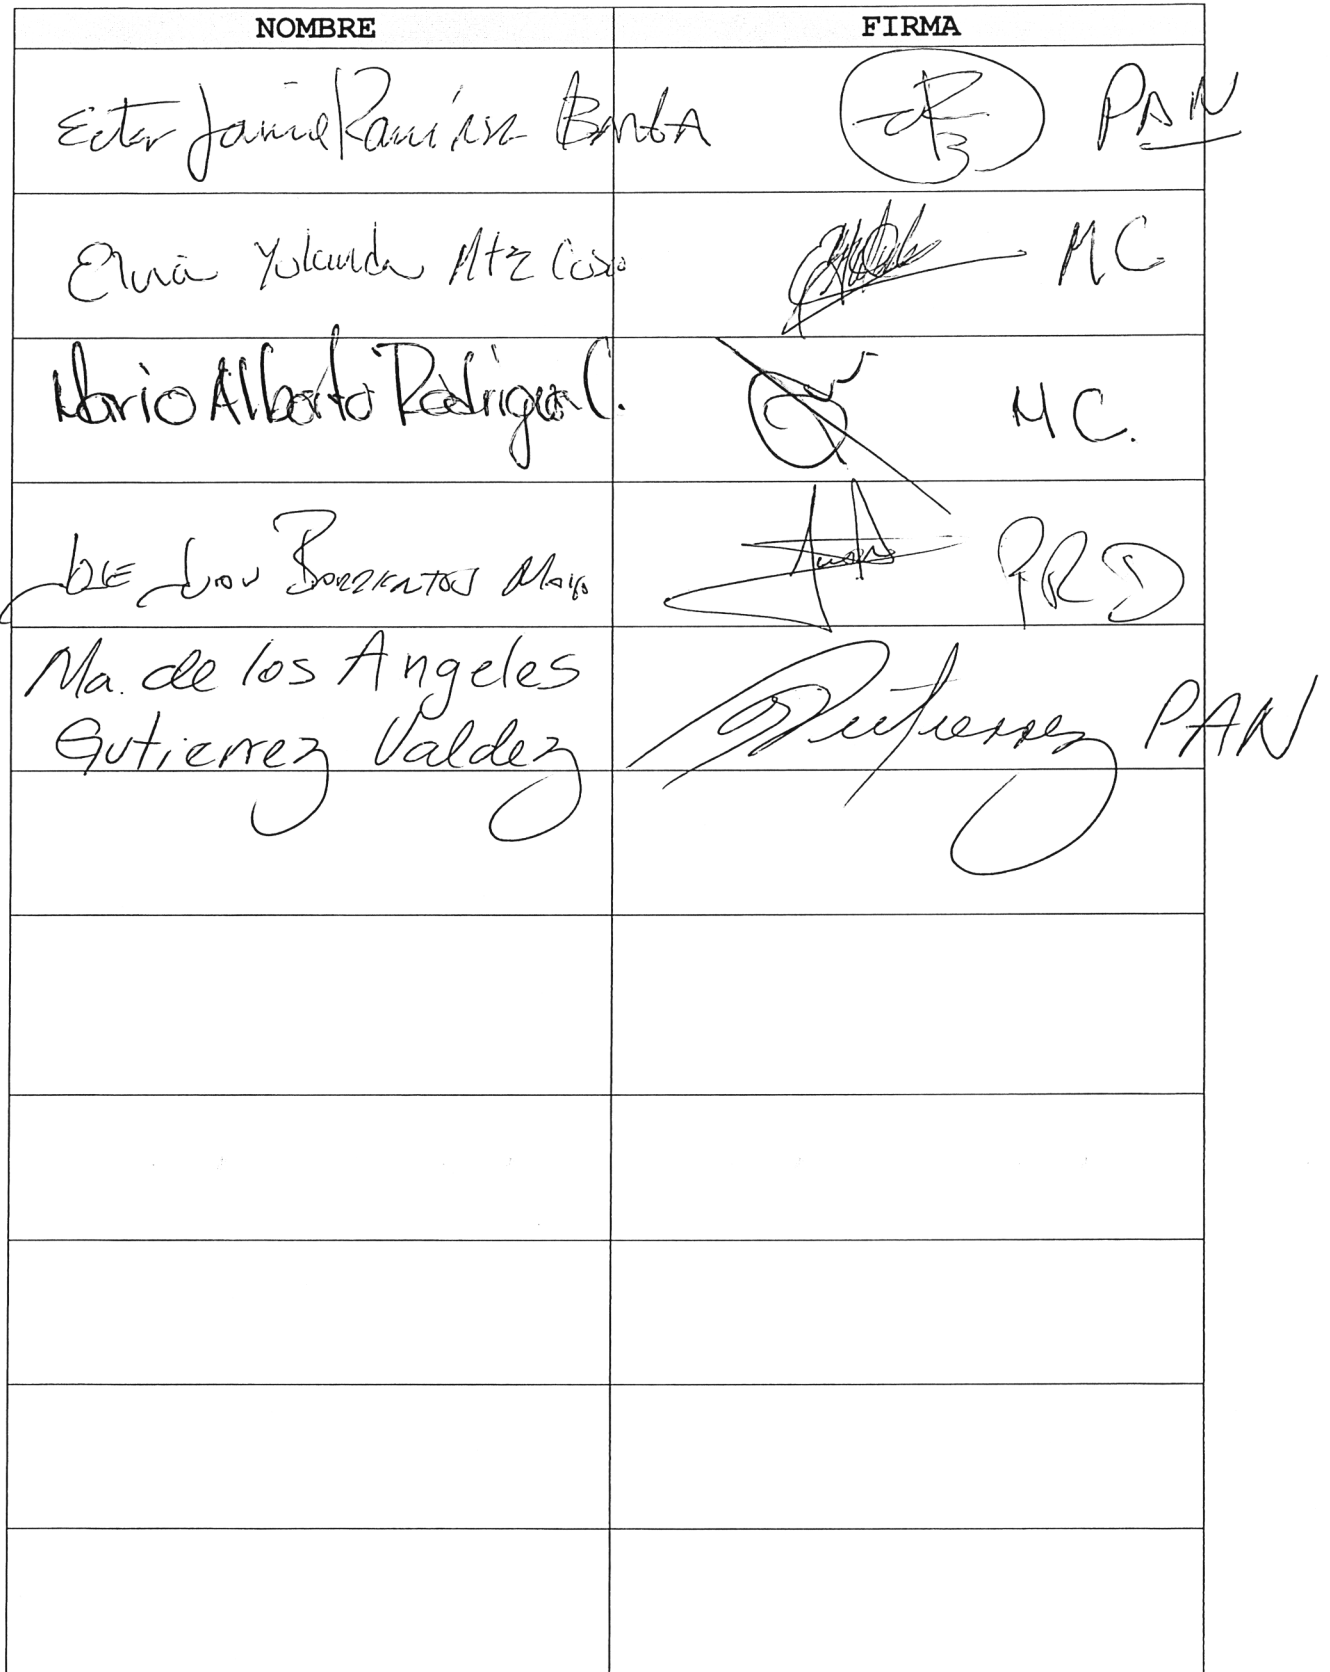 NOMBRE FIRMA
Ector Jaime Ramírez Barba PAN
Elvia Yolanda Mtz Cosío MC
Mario Alberto Rodríguez C. MC.
José Juan Barrientos Maya PRD
Ma. de los Angeles
Gutierrez Valdez Gutierrez PAN